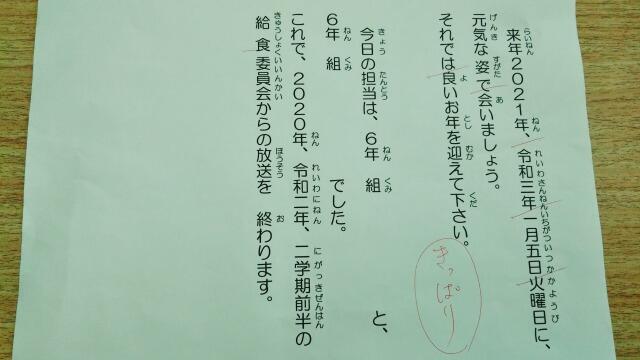 来年2021年、令和三年一月五日火曜日に、
元気な姿で会いましょう。
それでは良いお年を迎えて下さい。
きっぱり
今日の担当は、6年 組 と、
6年 組 でした。
これで、2020年、令和二年、二学期前半の
給食委員会からの放送を 終わります。